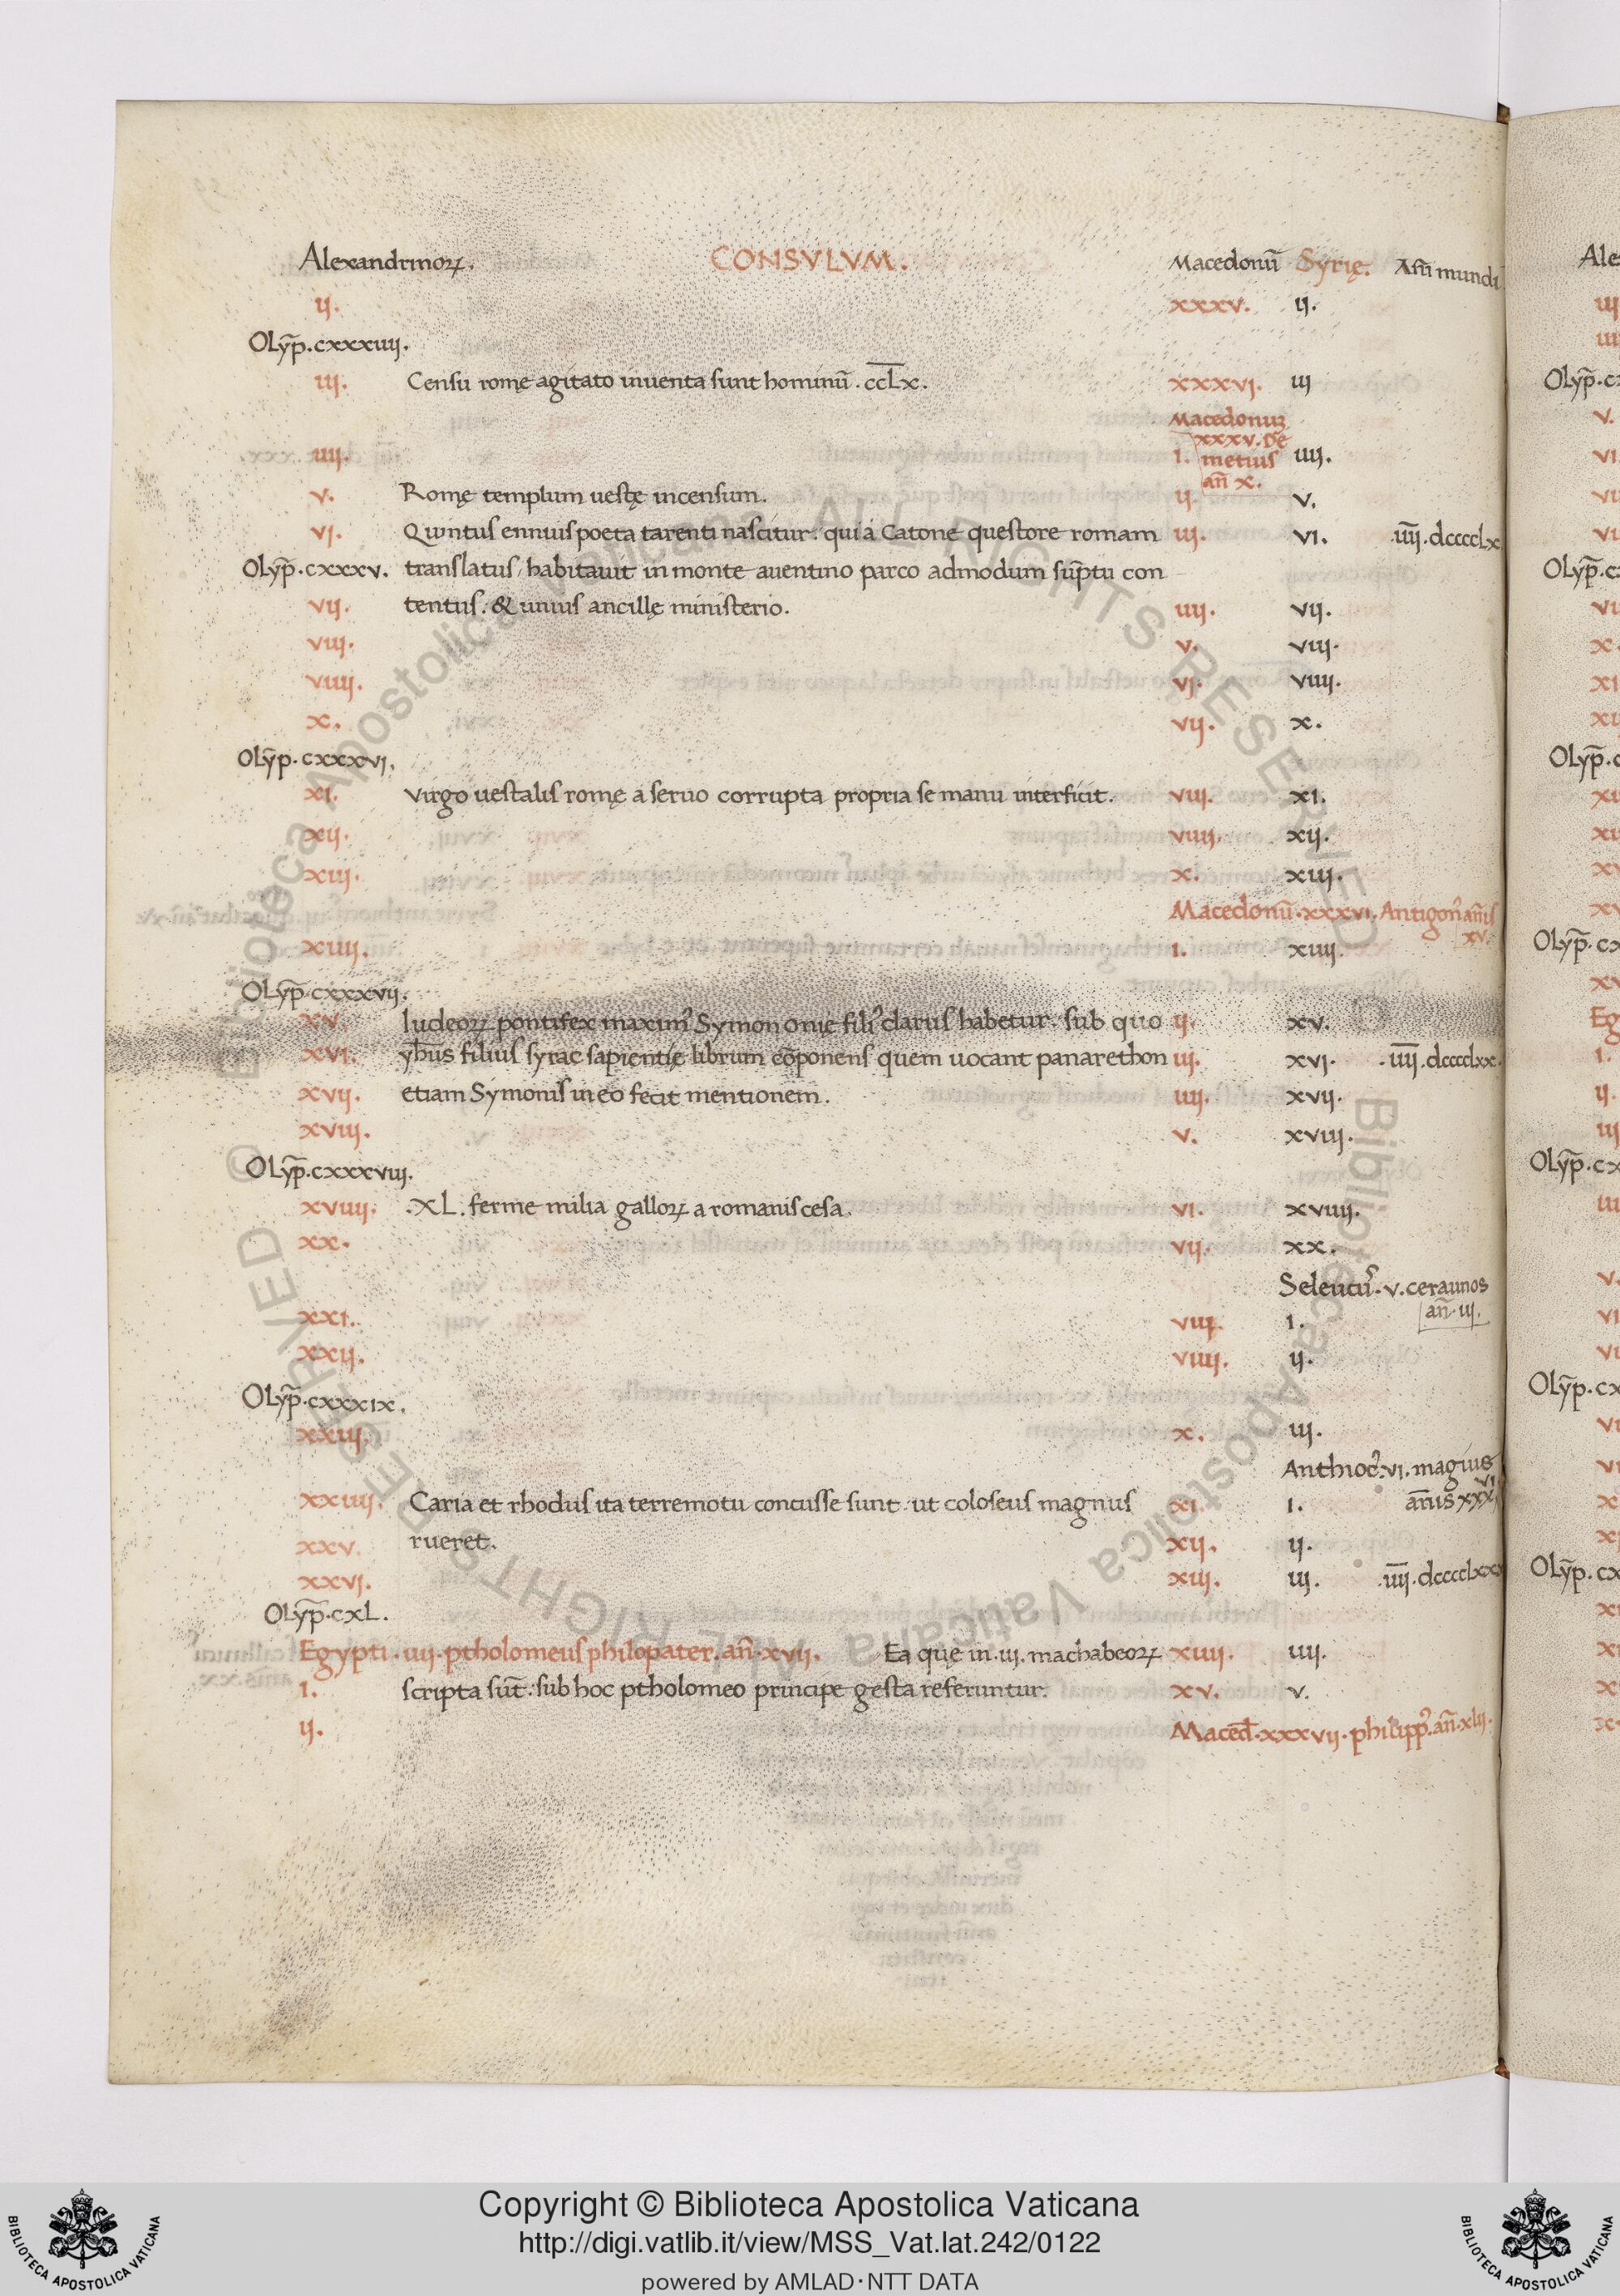 Alexandrinoꝝ. CONSVLVM. Macedonū Syrię. Añi mundi
ij. xxxv. ij.
Olym̄p. cxxxiiij.
iij. Censu romę agitato inuenta sunt hominū. c̄c̄L̄x̄. xxxvi. iij
Macedonuꝫ
xxxv. De
iiij. i. metius iiij.
añ x.
v. Romę templum uestę incensum. ij. v.
vj. Quintus ennius poeta tarenti nascitur. qui a Catone questore romam iij. vi. .īīīj. dcccclx
Olyp̄. cxxxv. translatus, habitauit in monte auentino parco admodum sūptu con
vij. tentus. & unius ancillę ministerio. iiij. vij.
viij. v. viij.
viiij. vj. viiij.
x. vij. x.
Olyp̄. cxxxvj.
xi. Virgo uestalis romę a seruo corrupta propria se manu interficit. viij. xi.
xij. viiij. xij.
xiij. x. xiij.
Macedonū. xxxvi. Antigonꝰ añis
xv.
xiiij. i. xiiij.
Olyp̄. cxxxvij.
xv. Iudeoꝝ pontifex maximꝰ Symon onię filiꝰ clarus habetur. sub quo ij. xv.
xvi. yħus filius syrac sapientię librum cōponens quem uocant panarethon iij. xvi. .īīīj. dcccclxx.
xvij. etiam Symonis in eo fecit mentionem. iiij. xvij.
xviij. v. xviij.
Olyp̄. cxxxviij.
xviiij. .XL. ferme milia galloꝝ a romanis cesa. vi. xviiij.
xx. vij. xx.
Seleucuˢ. v. ceraunos
añ. iij.
xxi. viij. i.
xxij. viiij. ij.
Olyp̄. cxxxix.
xxiij. x. iij.
Anthiocꝰ. vi. magius
añis xxxvi
xxiiij. Caria et rhodus ita terremotu concusse sunt. ut coloseus magnus xi. i.
xxv. rueret. xij. ij.
xxvj. xiij. iij. .īīīj. dcccclxxx
Olyp̄. cxL.
Egypti. iiij. ptholomeus philopater. añ. xvij. Ea quę in. iij. machabeoꝝ xiiij. iiij.
i. scripta sūt. sub hoc ptholomeo principe gesta referuntur. xv. v.
ij. Maced̄. xxxvij. philippꝰ. añ. xlij.
Copyright © Biblioteca Apostolica Vaticana
http://digi.vatlib.it/view/MSS_Vat.lat.242/0122
powered by AMLAD·NTT DATA
BIBLIOTECA APOSTOLICA VATICANA
BIBLIOTECA APOSTOLICA VATICANA